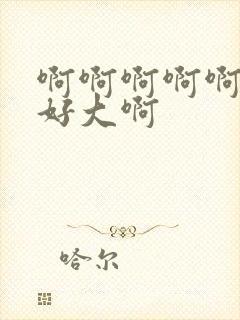 啊啊啊啊啊
好大啊
哈尔